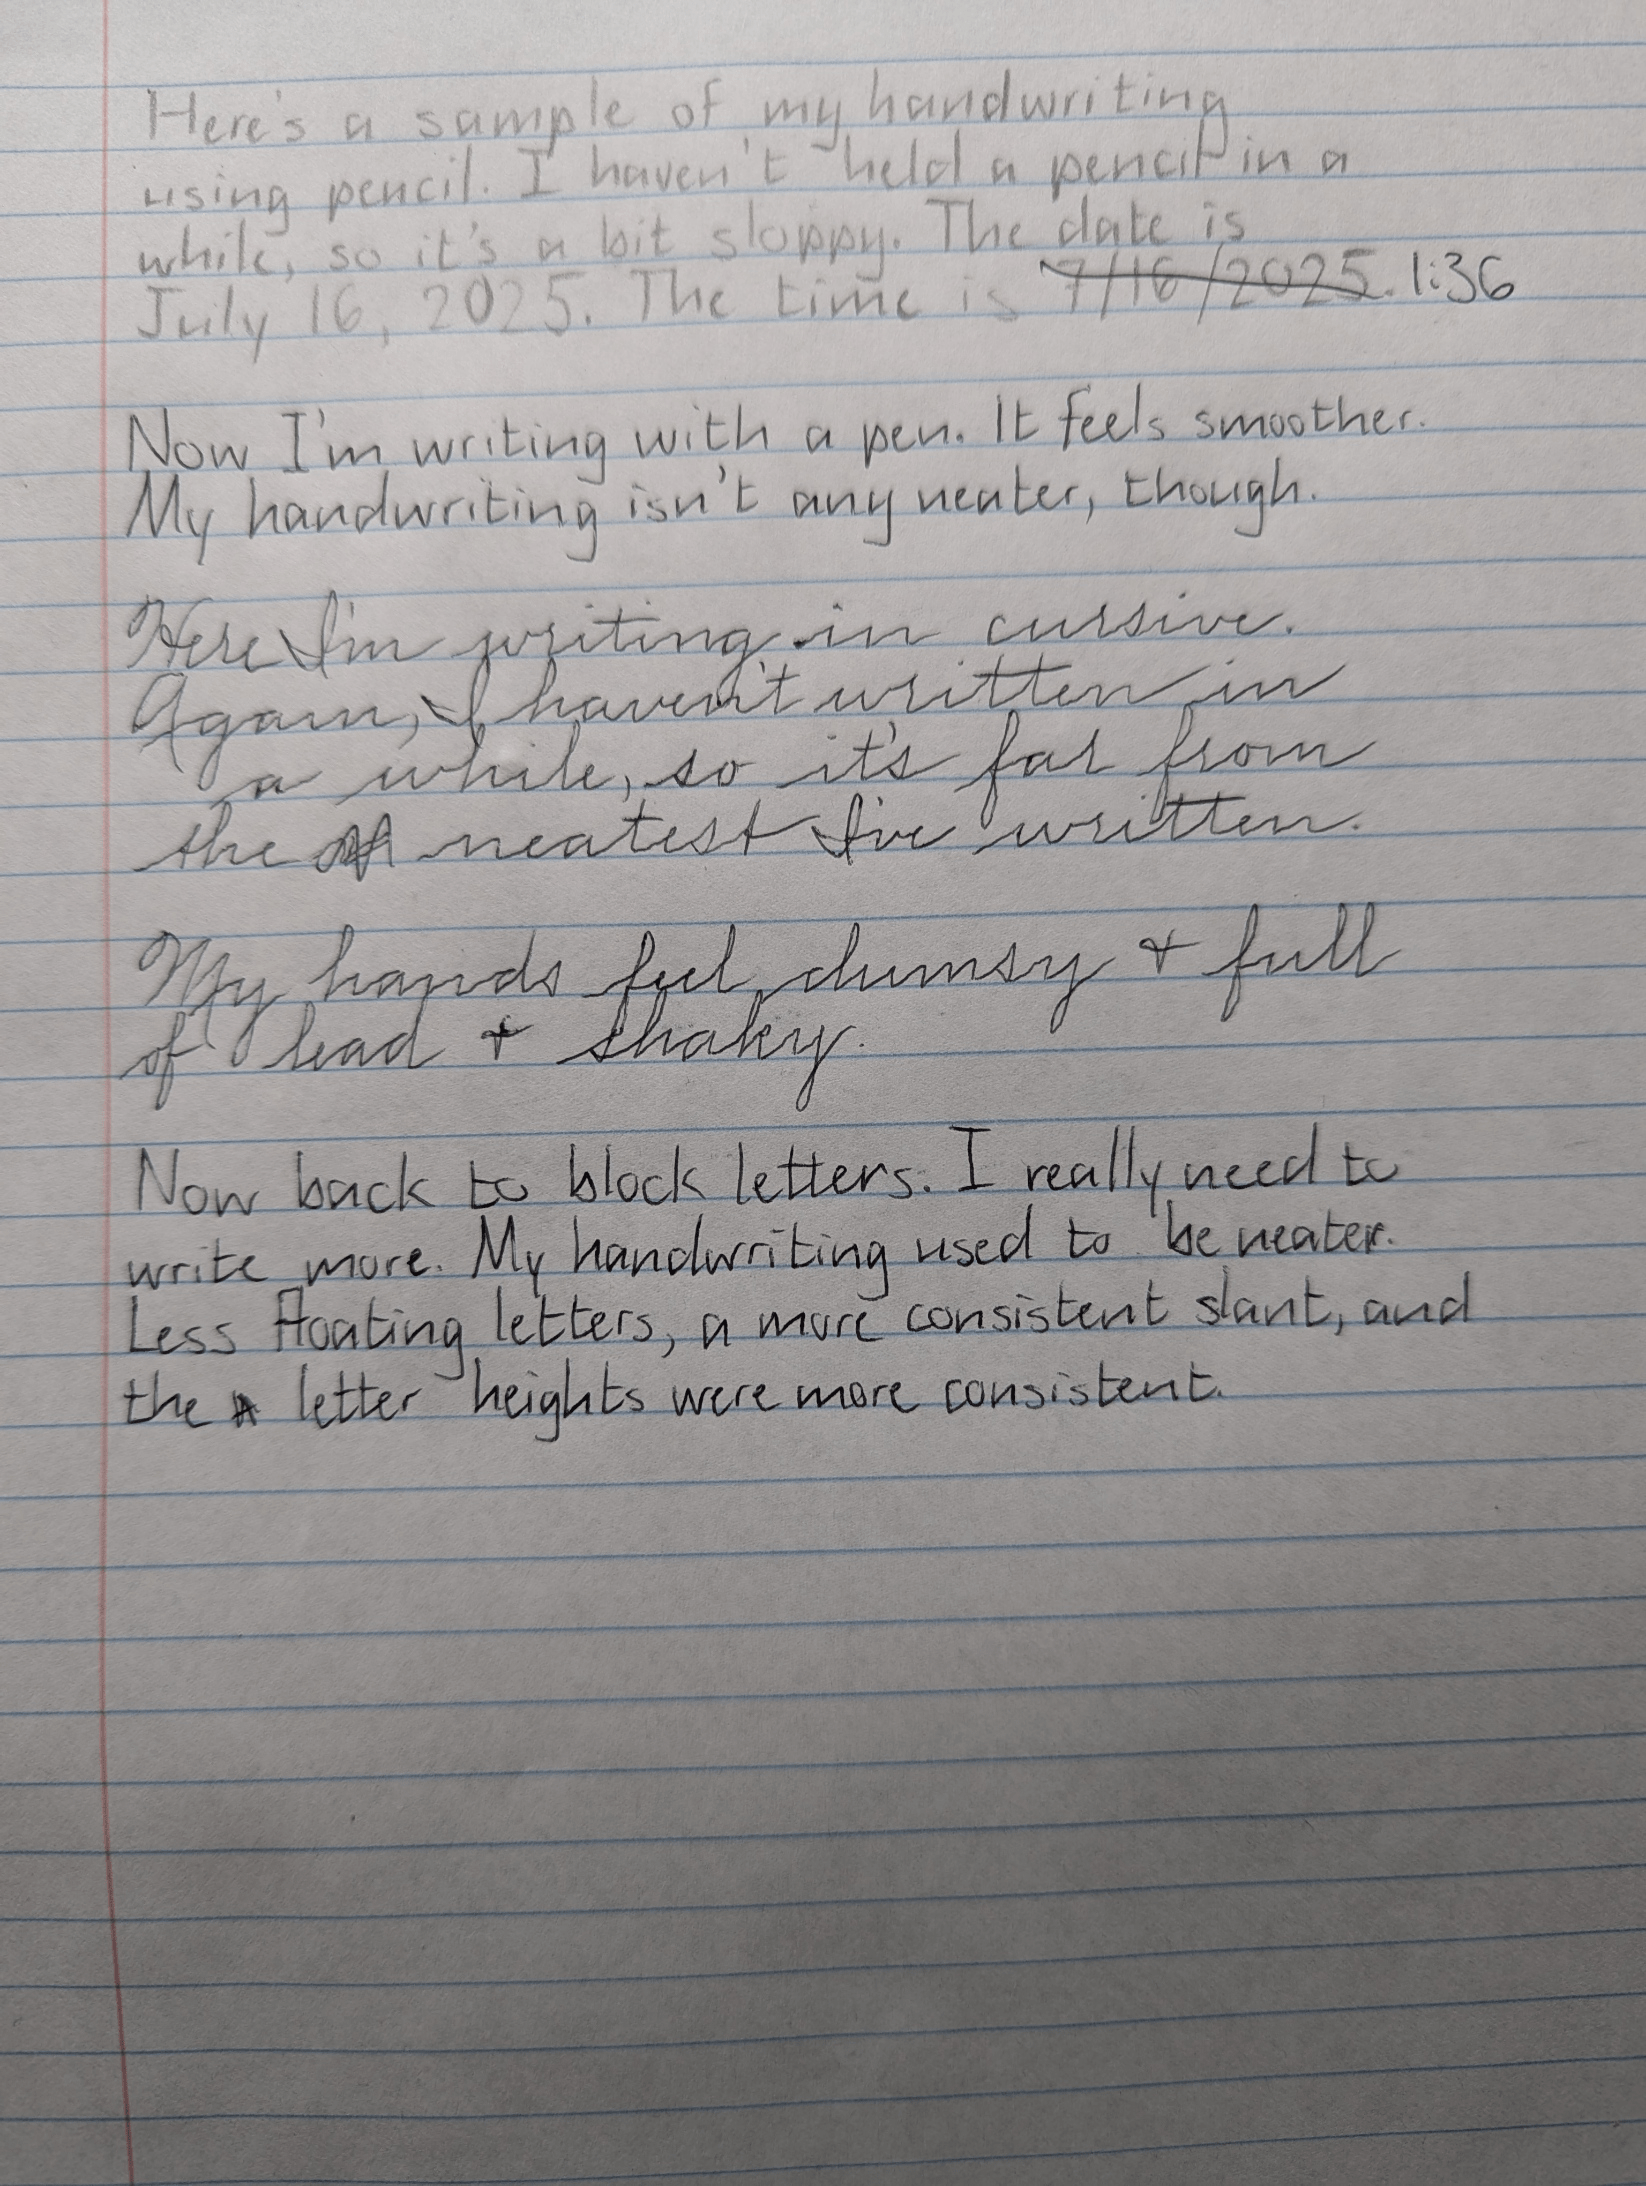 Here's a sample of my handwriting
using pencil. I haven't held a pencil in a
while, so it's a bit sloppy. The date is
July 16, 2025. The time is 7/16/2025. 1:36
Now I'm writing with a pen. It feels smoother.
My handwriting isn't any neater, though.
Here I'm writing in cursive.
Again, I haven't written in
a while, so it's far from
the neatest I've written.
My hands feel clumsy & full
of lead & shaky.
Now back to block letters. I really need to
write more. My handwriting used to be neater.
Less floating letters, a more consistent slant, and
the letter heights were more consistent.